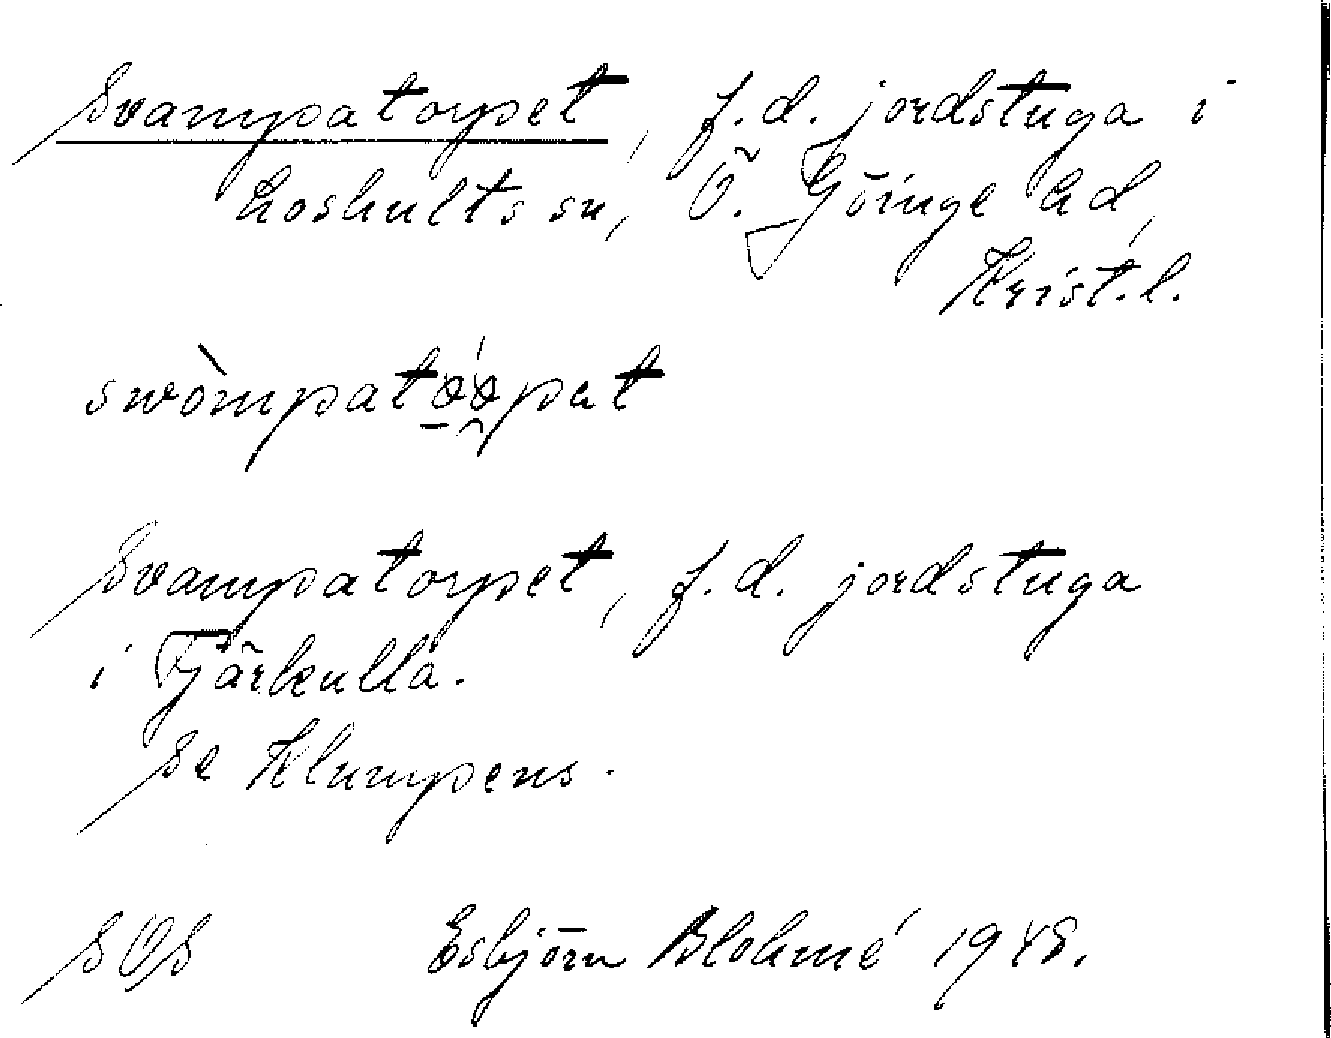 Svampatorpet, f.d. jordstuga i
Loshults sn, Ö. Göinge hd,
Krist. l.
Svampatorpet, f.d. jordstuga
i Tjärkulla.
Se Klumpens.
SOS Esbjörn Blohmé 1948.